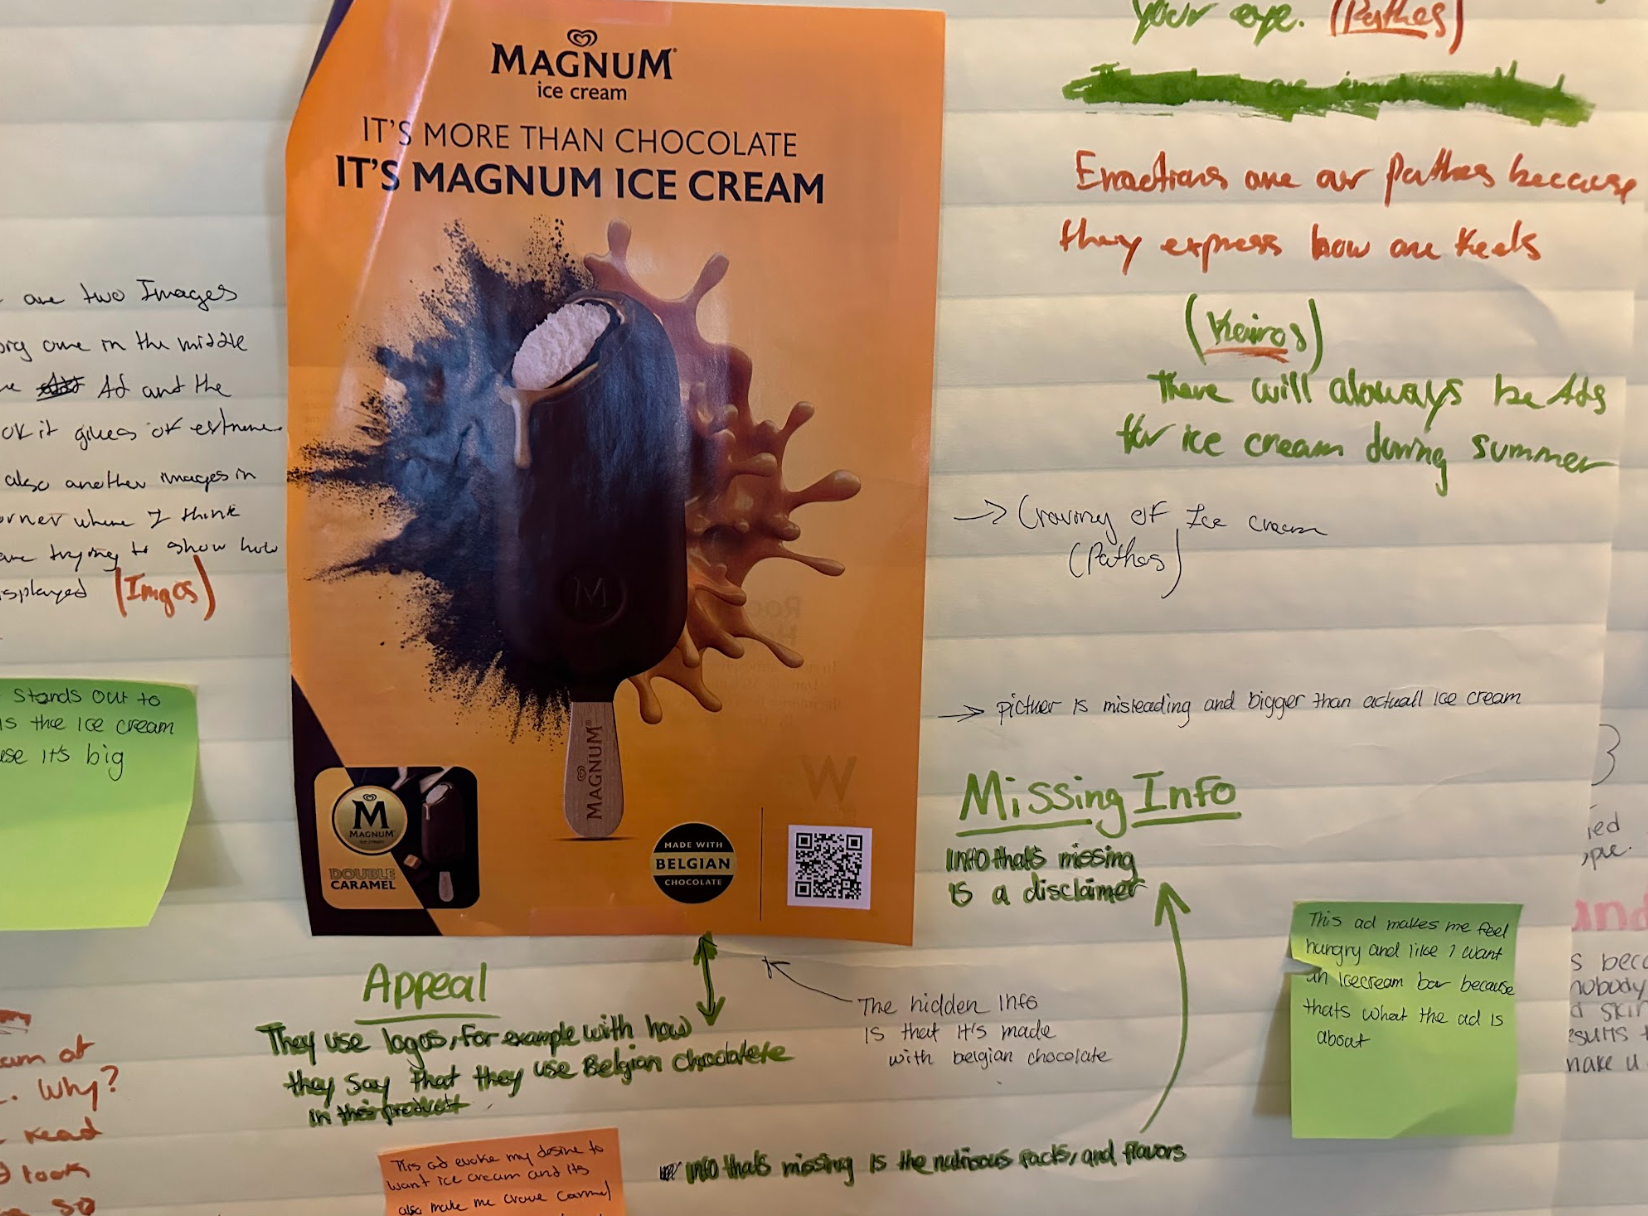 MAGNUM
ice cream
IT'S MORE THAN CHOCOLATE
IT'S MAGNUM ICE CREAM
MAGNUM
M
M
MAGNUM
DOUBLE
CARAMEL
MADE WITH
BELGIAN
CHOCOLATE
are two Images
one in the middle
Ad and the
ok it gives of extreme
also another images in
orner where I think
are trying to show how
isplayed (Imgos)
Stands out to
is the ice cream
use it's big
Why?
read
look
so
your eye. (Pathos)
Emoctions are our Pathos because
they express how are feels
(Keiros)
There will alaways be Ads
for ice cream during summer
→ Craving of Ice cream
(Pathos)
→ pictuer is misleading and bigger than actuall ice cream
Missing Info
Info that's missing
is a disclaimer
This ad makes me feel
hungry and like I want
an icecream bar because
thats what the ad is
about
Appeal
They use logos, for example with how
they say that they use Belgian chocolate
in this product
The hidden info
is that it's made
with belgian chocolate
info that's missing is the nutrisous facts, and flavors
This ad evoke my desire to
want ice cream and its
also make me crave carmel